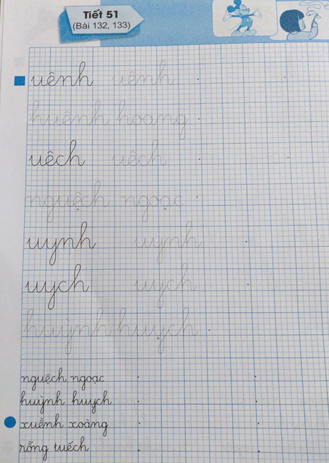 Tiết 51
(Bài 132, 133)
uênh uênh
huênh hoang
uêch uêch
nguệch ngoạc
uynh uynh
uych uych
huỳnh huỵch
nguệch ngoạc
huỳnh huỵch
xuềnh xoàng
rỗng tuếch